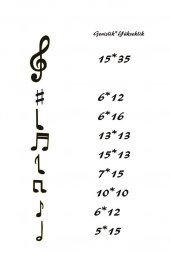 Genislik* Yükseklik
15*35
6*12
6*16
13*13
15*13
7*15
10*10
6*12
5*15